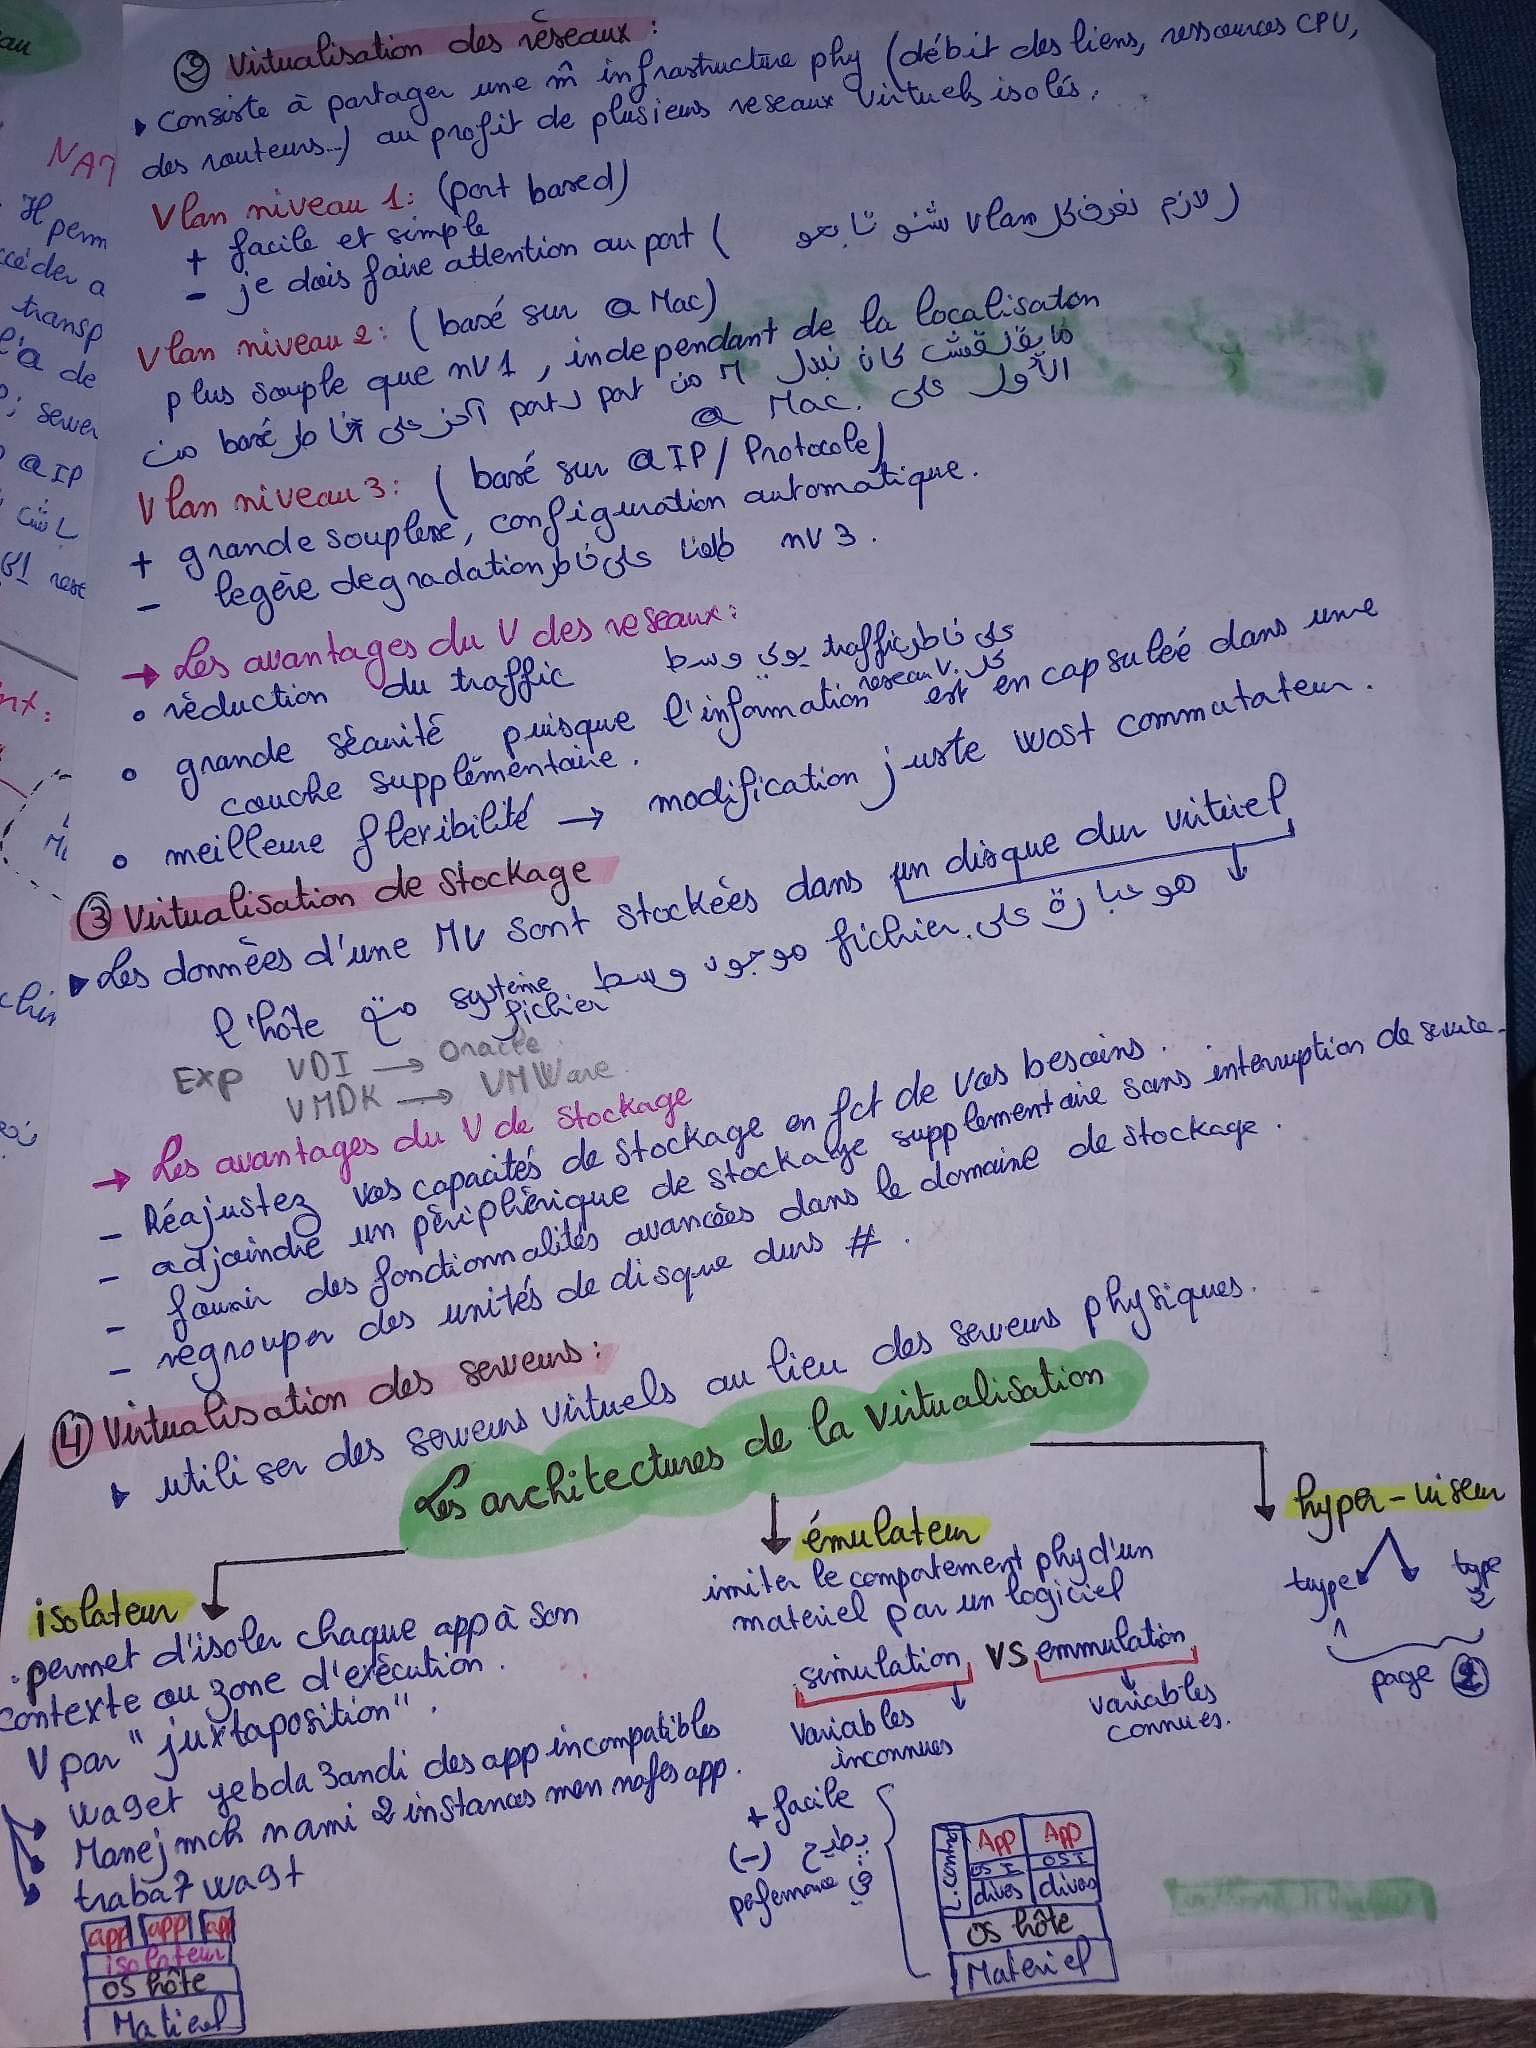 ② Virtualisation des réseaux :
▸ Consiste à partager une m̂ infrastructure phy (débit des liens, ressources CPU,
des routeurs...) au profit de plusieurs reseaux virtuels isolés.
Vlan niveau 1: (port based)
+ facile et simple
- je dois faire attention au port ( لازم نعرف كل vlan شنو تابعو )
Vlan niveau 2: (basé sur @ Mac)
plus souple que nv1, independant de la localisaton
ما يقلقش كان نبدل M من port لـ port آخر على خاطر basé من
الأول على @ Mac.
Vlan niveau 3: (basé sur @IP / Protocole)
+ grande souplesse, configuration automatique.
- legère degradation على خاطر طلعنا nv 3.
→ Les avantages du V des reseaux:
• réduction du traffic على خاطر traffic يوزع وسط
كل reseau V.
• grande sécurité puisque l'information est en capsulée dans une
couche supplémentaire.
• meilleure flexibilité → modification juste wost commutateur.
③ Virtualisation de stockage
▸ Les données d'une MV sont stockées dans un disque dur virtuel
هو عبارة على fichier موجود وسط système fichier متع l'hôte
Exp VDI → Oracle
VMDK → VMWare
→ Les avantages du V de stockage
- Réajustez vos capacités de stockage en fct de vos besoins.
- adjoindre un périphérique de stockage supplementaire sans interruption de service.
- fournir des fonctionnalités avancées dans le domaine de stockage.
- regrouper des unités de disque durs #.
④ Virtualisation des serveurs :
▸ utiliser des serveurs virtuels au lieu des serveurs physiques.
Les architectures de la virtualisation
isolateur
permet d'isoler chaque app à son
contexte ou zone d'exécution.
V par "juxtaposition".
wa9et yebda 3andi des app incompatibles
Manejmch nami 2 instances men nafes app.
traba7 wa9t
app app app
isolateur
OS hôte
Matériel
émulateur
imiter le comportement phy d'un
materiel par un logiciel
simulation VS emmulation
variables inconnues
variables connues.
+ facile
(-) يطيح في
peformance
App App
OS I OS I
OS hôte
Materiel
hyper-viseur
type 1
type 2
page